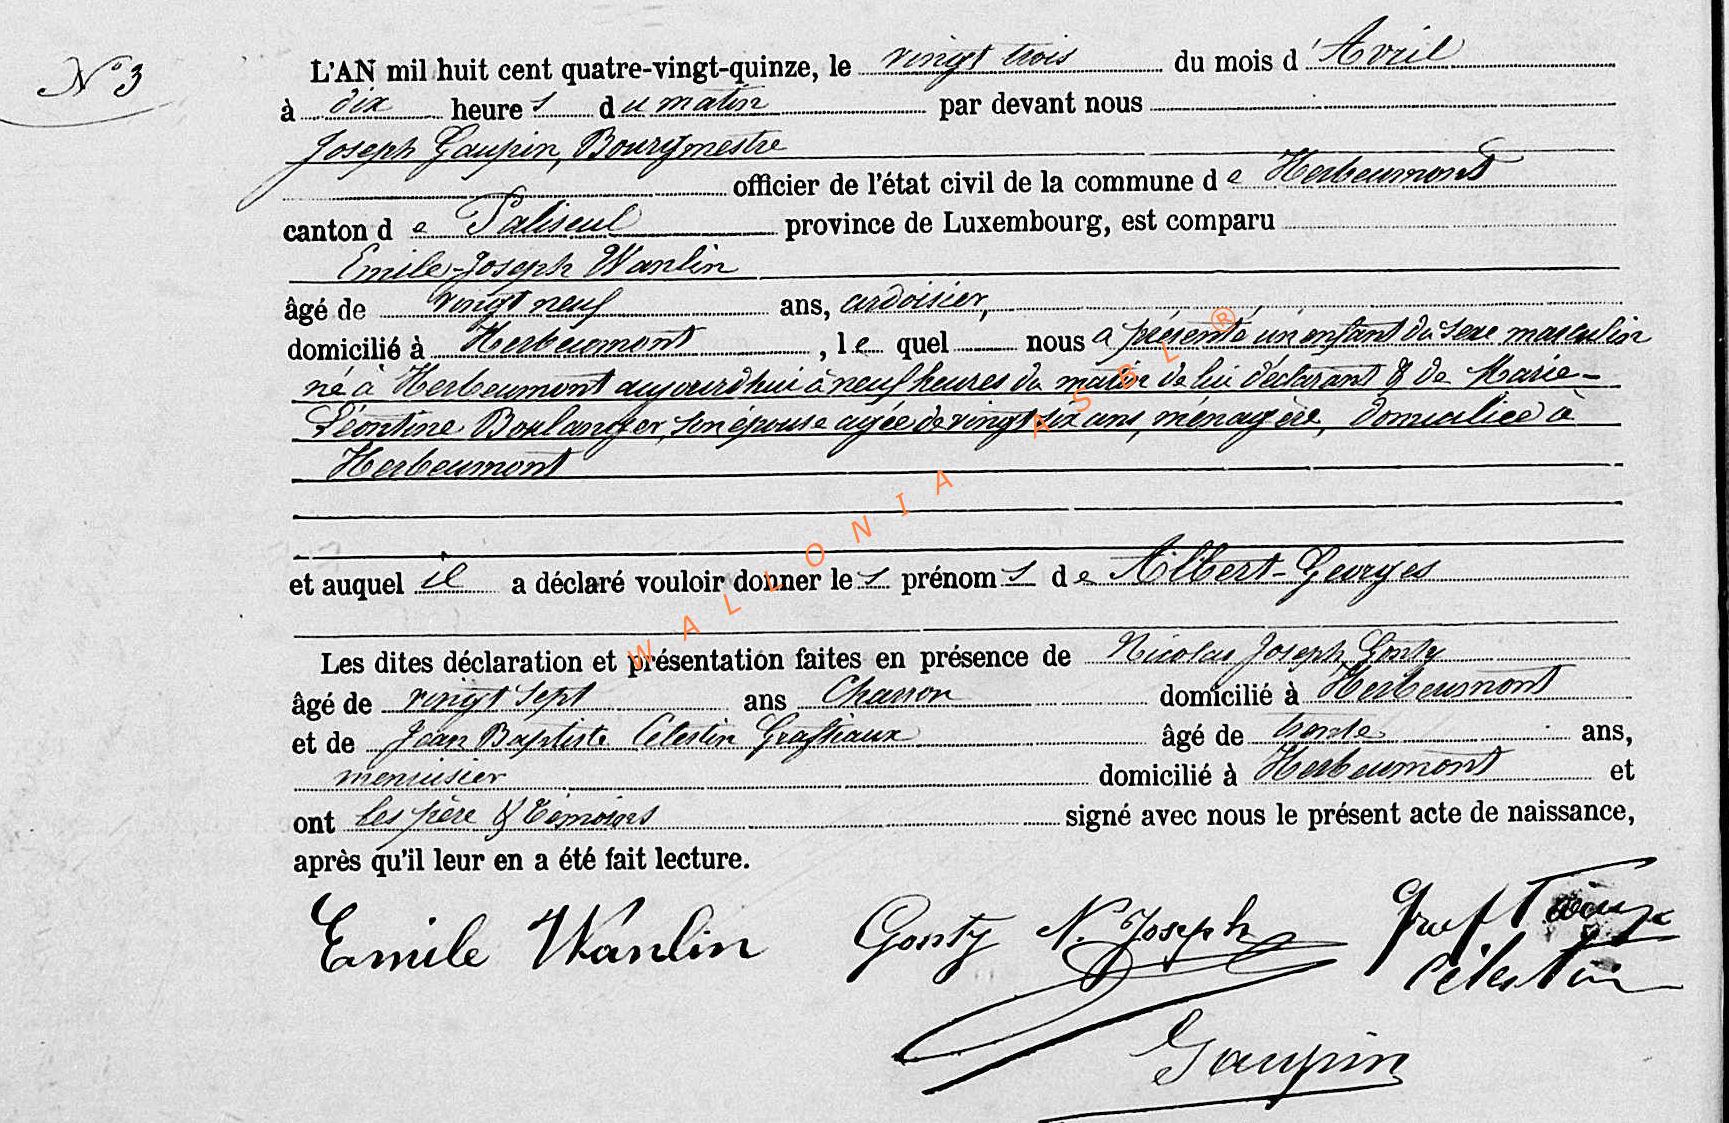 N° 3
L'AN mil huit cent quatre-vingt-quinze, le vingt trois du mois d'Avril
à dix heures du matin par devant nous
Joseph Gaupin, Bourgmestre
officier de l'état civil de la commune de Herbeumont
canton de Paliseul province de Luxembourg, est comparu
Emile-Joseph Wanlin
âgé de vingt neuf ans, ardoisier,
domicilié à Herbeumont, lequel nous a présenté un enfant du sexe masculin
né à Herbeumont aujourd'hui à neuf heures du matin de lui déclarant & de Marie-
Léontine Boulanger, son épouse agée de vingt six ans, ménagère, domiciliée à
Herbeumont
et auquel il a déclaré vouloir donner les prénoms de Albert-Georges
Les dites déclaration et présentation faites en présence de Nicolas Joseph Gonty
âgé de vingt sept ans Charron domicilié à Herbeumont
et de Jean Baptiste Célestin Graftiaux âgé de trente ans,
menuisier domicilié à Herbeumont et
ont les père & témoins signé avec nous le présent acte de naissance,
après qu'il leur en a été fait lecture.
Emile Wanlin Gonty N. Joseph Graftiaux
Célestin
Gaupin
WALLONIA ASBL ®